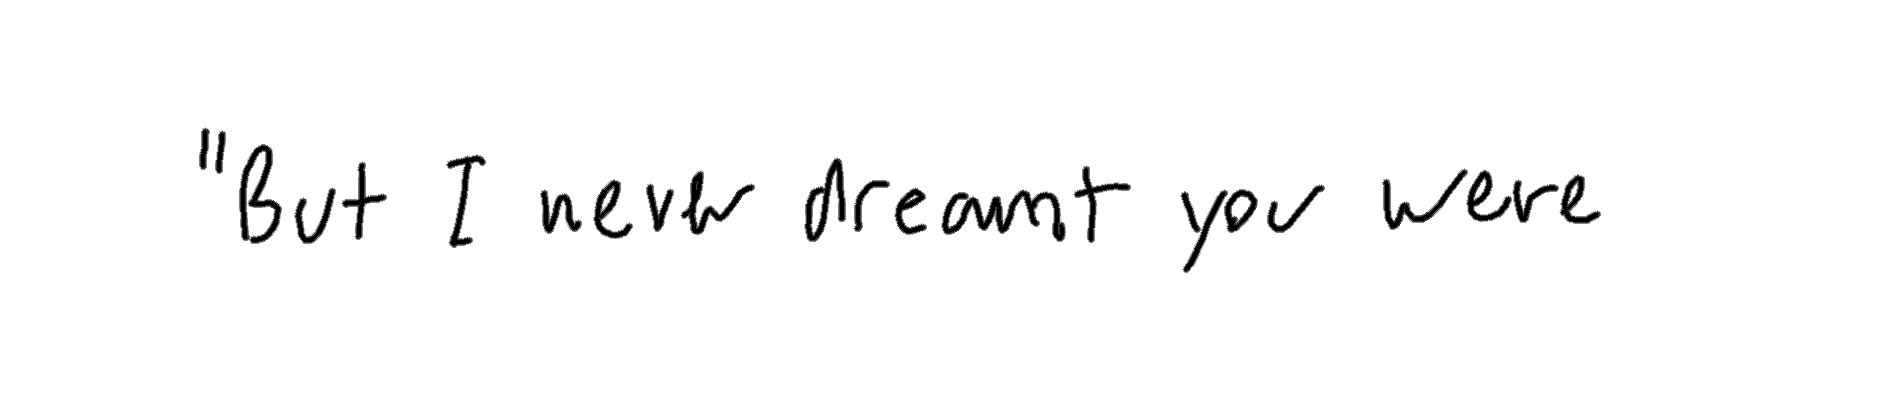 "But I never dreamt you were